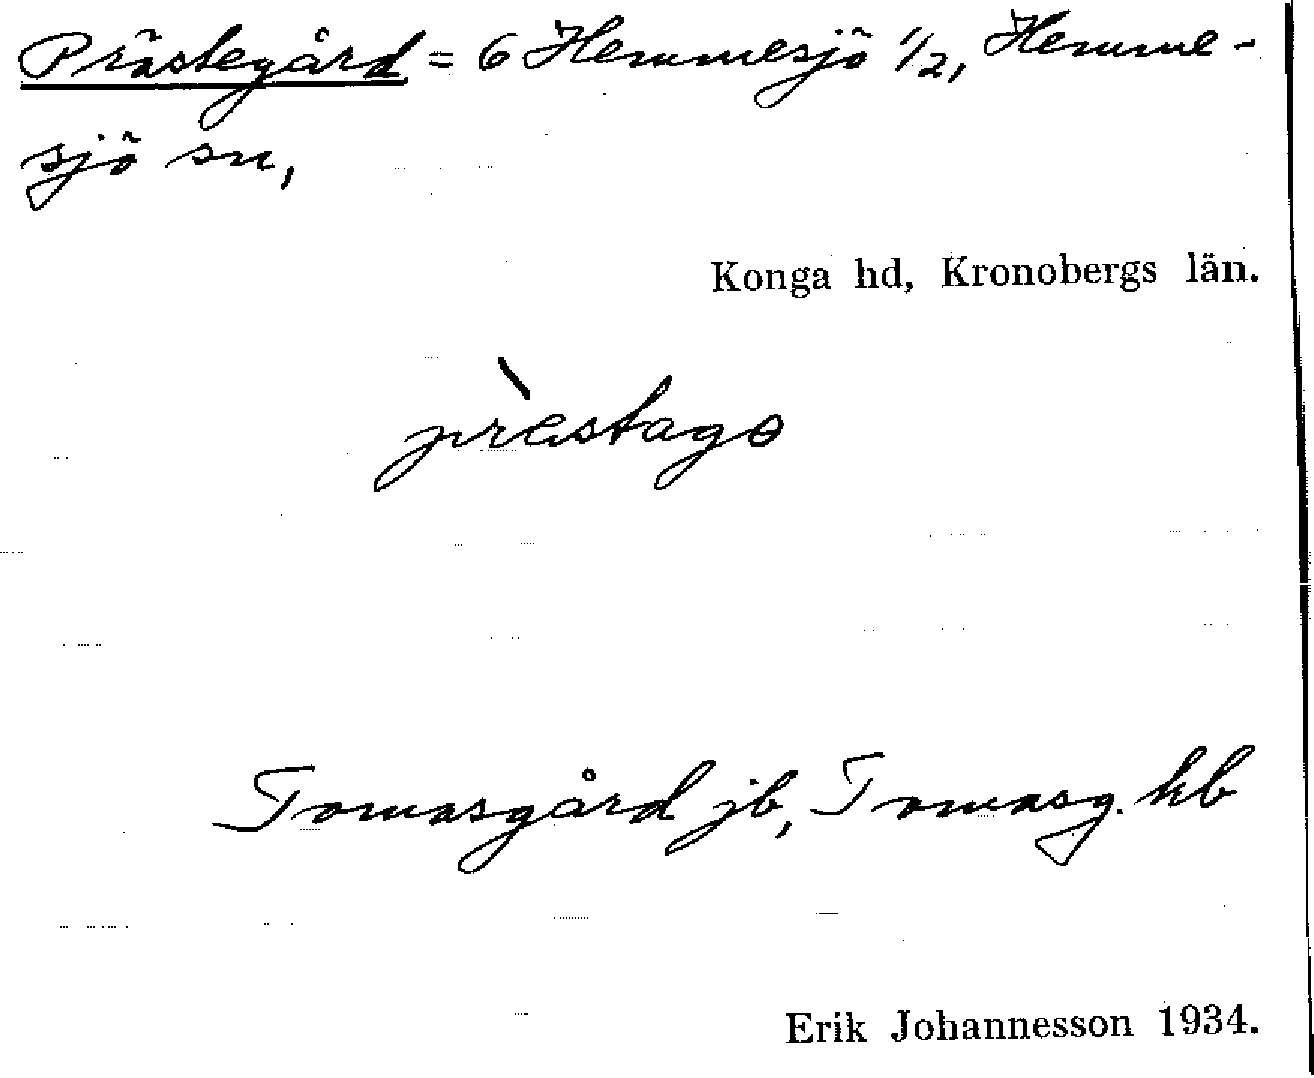 Prästegård = 6 Hemmesjö 1/2, Hemme-
sjö sn,
Konga hd, Kronobergs län.
prὲstagɵ
Tomasgård jb, Tomasg. hb
Erik Johannesson 1934.